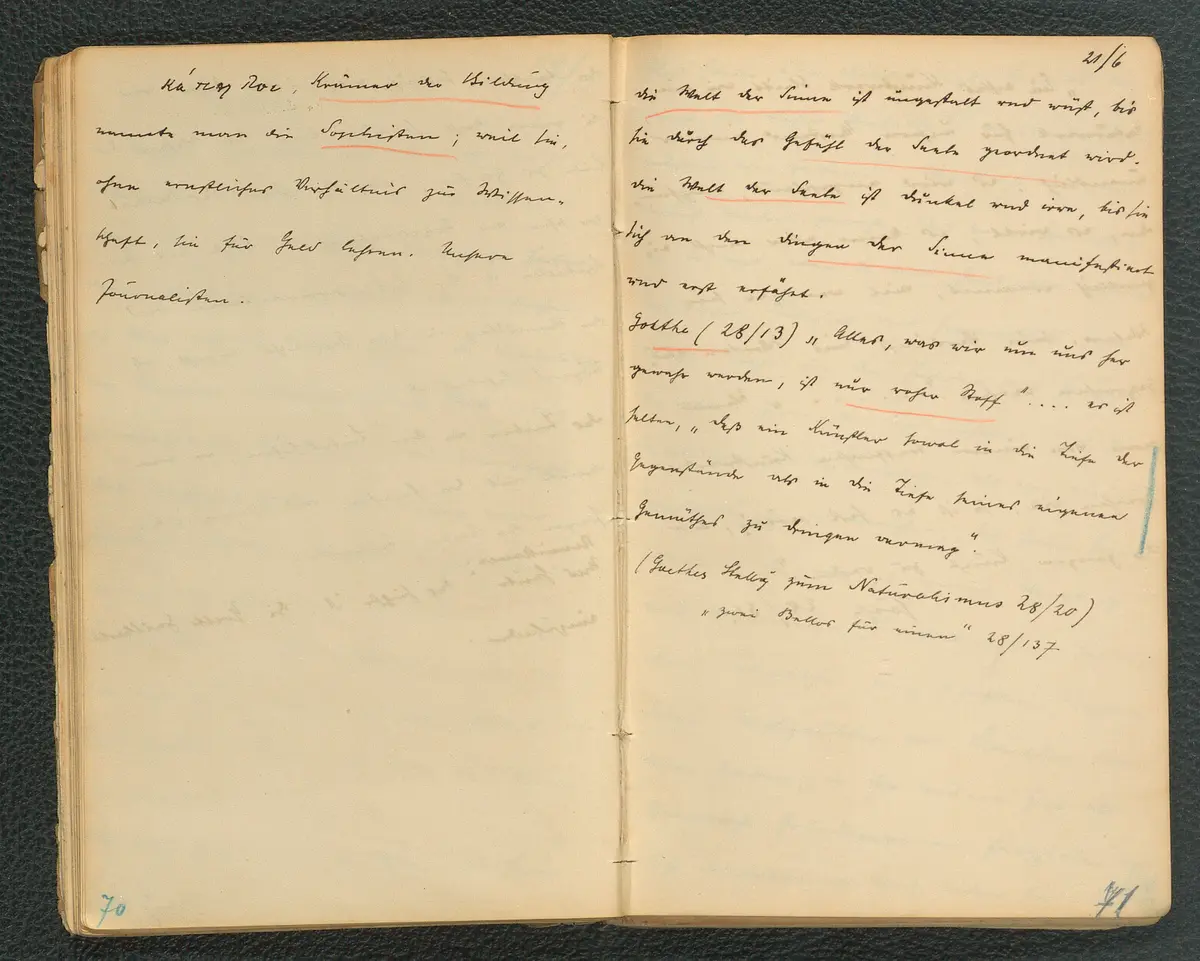 κάπηλοι, Krämer der Bildung
nannte man die Sophisten; weil sie,
ohne ernstliches Verhältnis zur Wissen-
schaft, sie für Geld lehren. Unsere
Journalisten.
70
21/6
die Welt der Sinne ist ungestalt und wüst, bis
sie durch das Gefühl der Seele geordnet wird.
die Welt der Seele ist dunkel und irre, bis sie
sich an den Dingen der Sinne manifestiert
und erst erfährt.
Goethe (28/13) „Alles, was wir um uns her
gewahr werden, ist nur roher Stoff".... es ist
selten, „daß ein Künstler sowol in die Tiefe der
Gegenstände als in die Tiefe seines eigenen
Gemüthes zu dringen vermag".
(Goethes Stellg zum Naturalismus 28/20)
„zwei Bellos für einen" 28/137
71